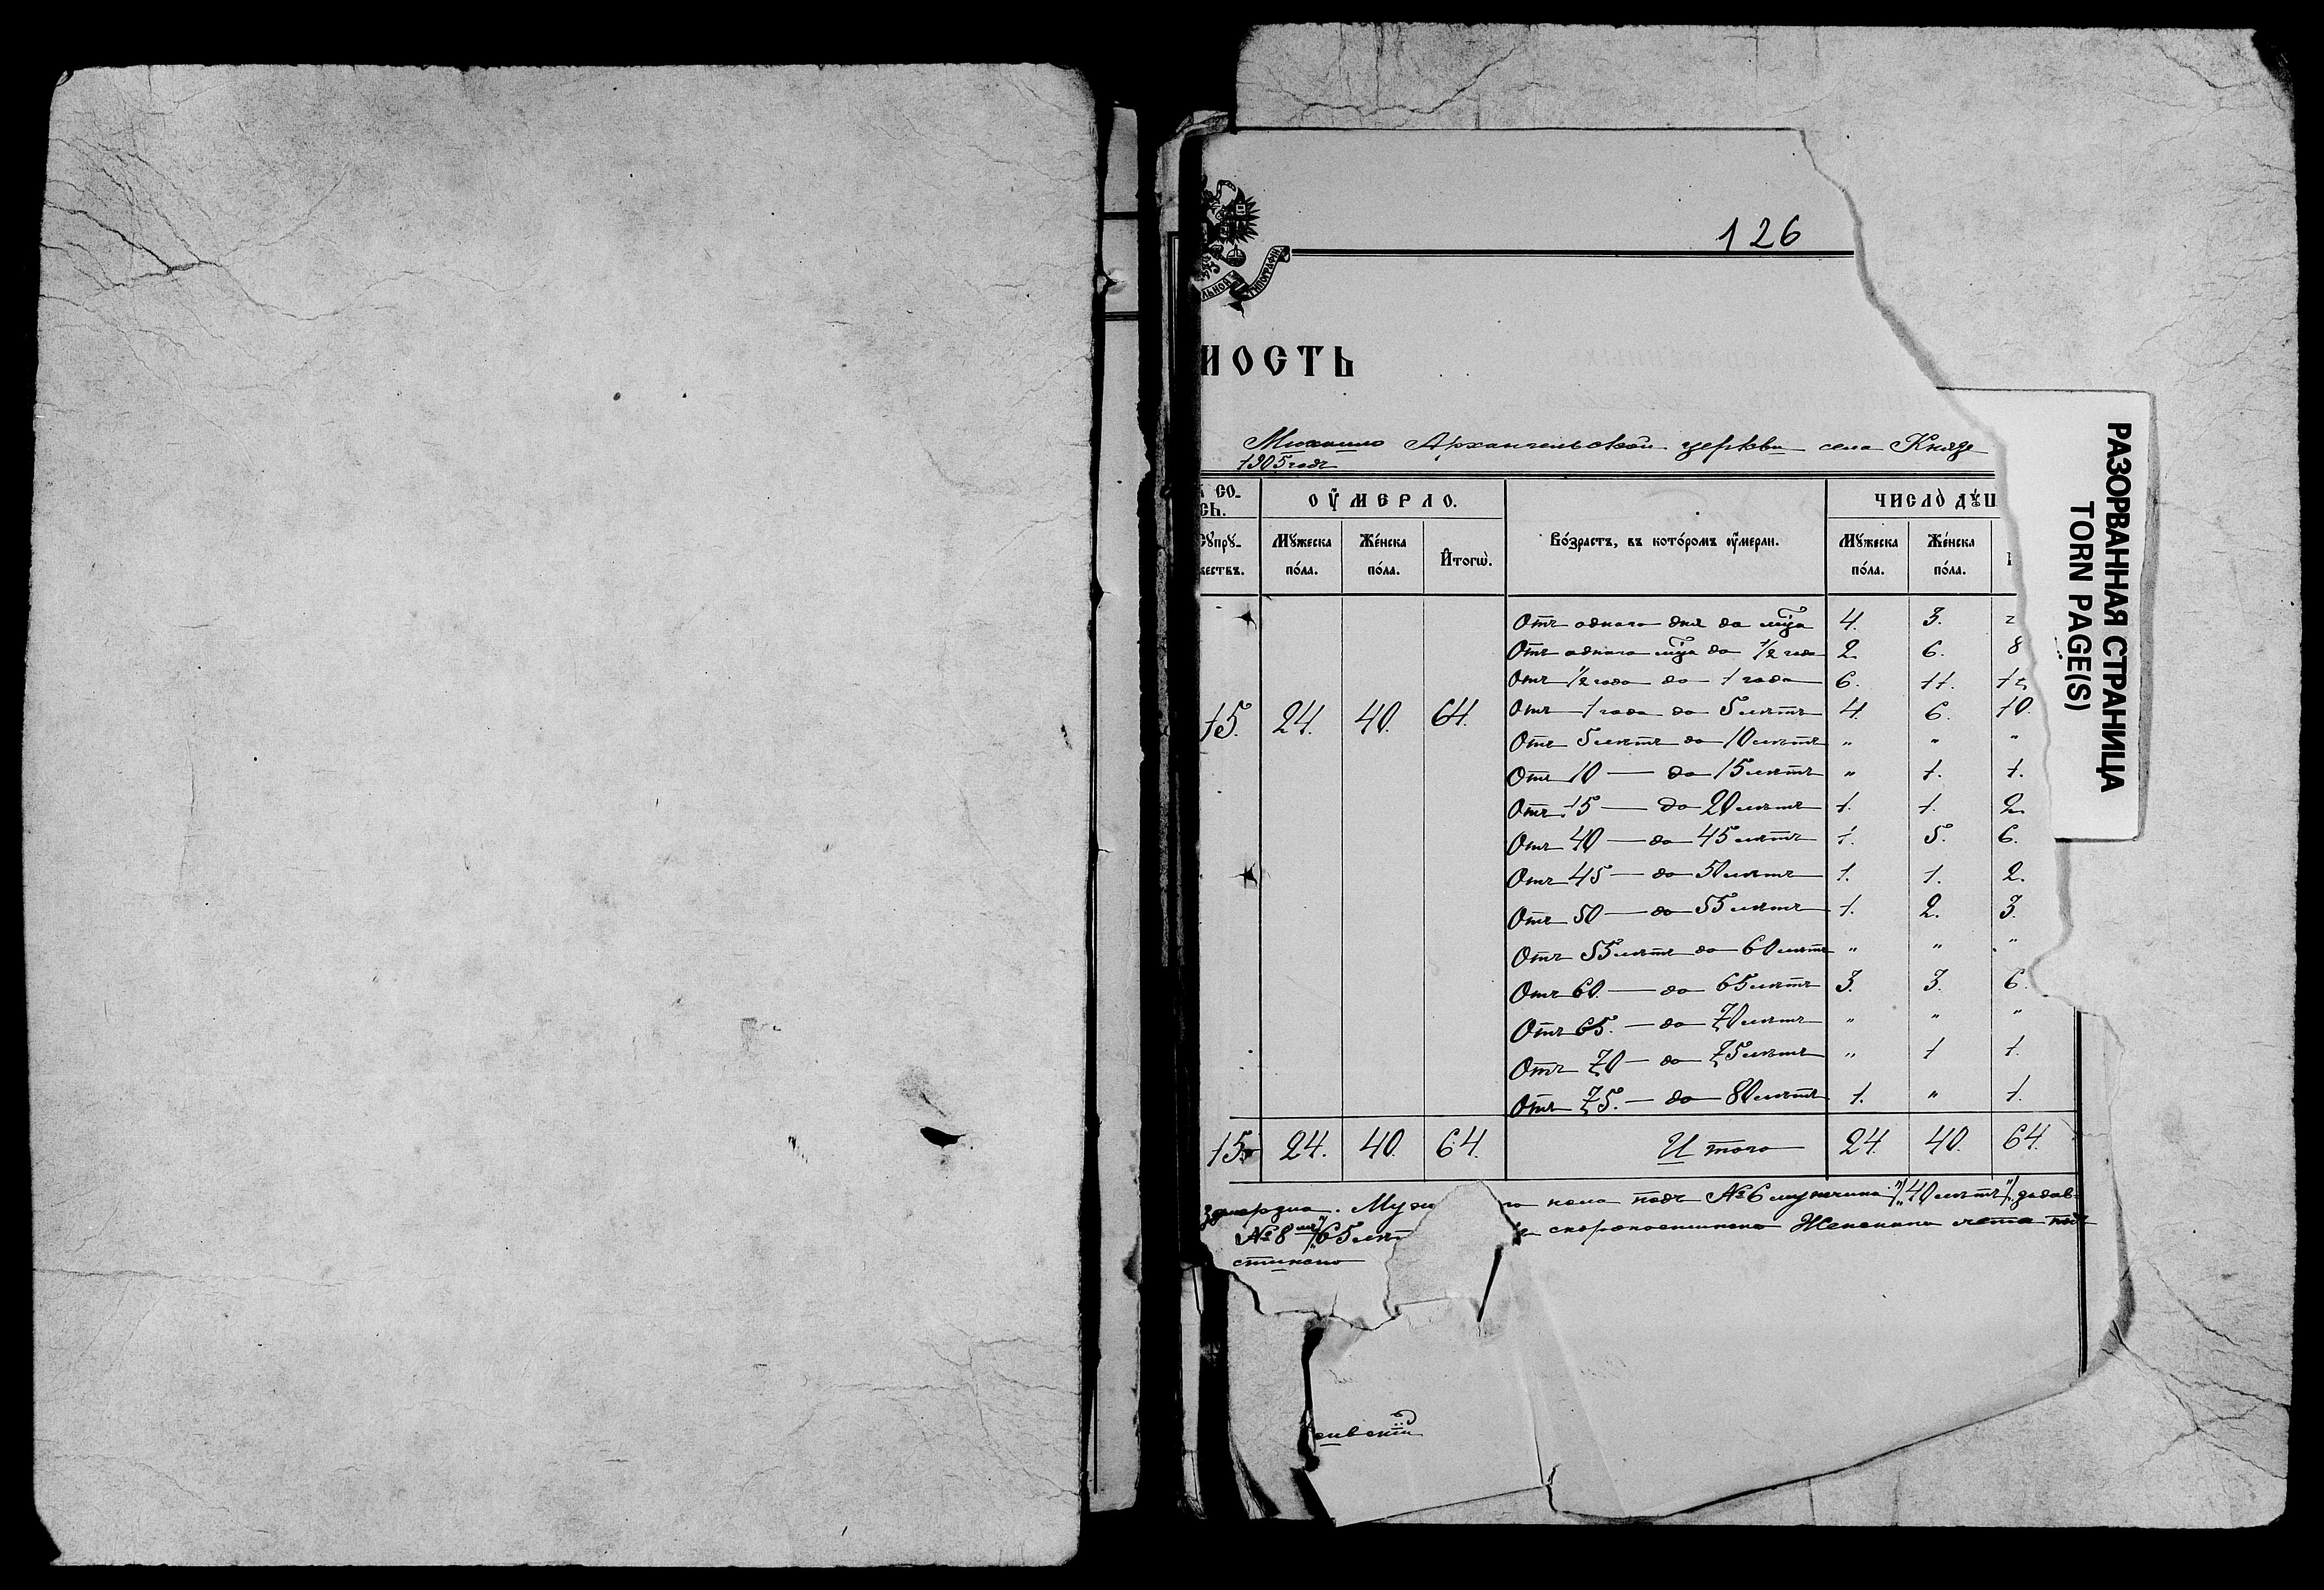 126
ЛЬНОЙ ТИПОГРАФІИ
МОСТЬ
Михаило Архангельской церкви села Князе
1905 годъ
СО-
СЬ.
ОУМЕРЛО.
ЧИСЛО ДУШ
Супру-
жествъ.
Мужеска пола.
Женска пола.
Итого.
Возрастъ, въ которомъ оумерли.
Мужеска пола.
Женска пола.
Отъ одного дня до мца 4. 3.
Отъ одного мца до 1/2 года 2. 6. 8
Отъ 1/2 года до 1 года 6. 11.
15. 24. 40. 64. Отъ 1 года до 5 летъ 4. 6. 10.
Отъ 5 летъ до 10 летъ " " "
Отъ 10 — до 15 летъ " 1. 1.
Отъ 15 — до 20 летъ 1. 1. 2.
Отъ 40 — до 45 летъ 1. 5. 6.
Отъ 45 — до 50 летъ 1. 1. 2.
Отъ 50 — до 55 летъ 1. 2. 3.
Отъ 55 летъ до 60 летъ " " "
Отъ 60 — до 65 летъ 3. 3. 6.
Отъ 65. — до 70 летъ " " "
Отъ 70 — до 75 летъ " 1 1.
Отъ 75. — до 80 летъ 1. " 1.
15 24. 40. 64. Итого 24. 40. 64.
пола подъ № 6 мужчина "40 летъ"
№ 8 65 скоропостижно Женскаго
стижно
РАЗОРВАННАЯ СТРАНИЦА
TORN PAGE(S)